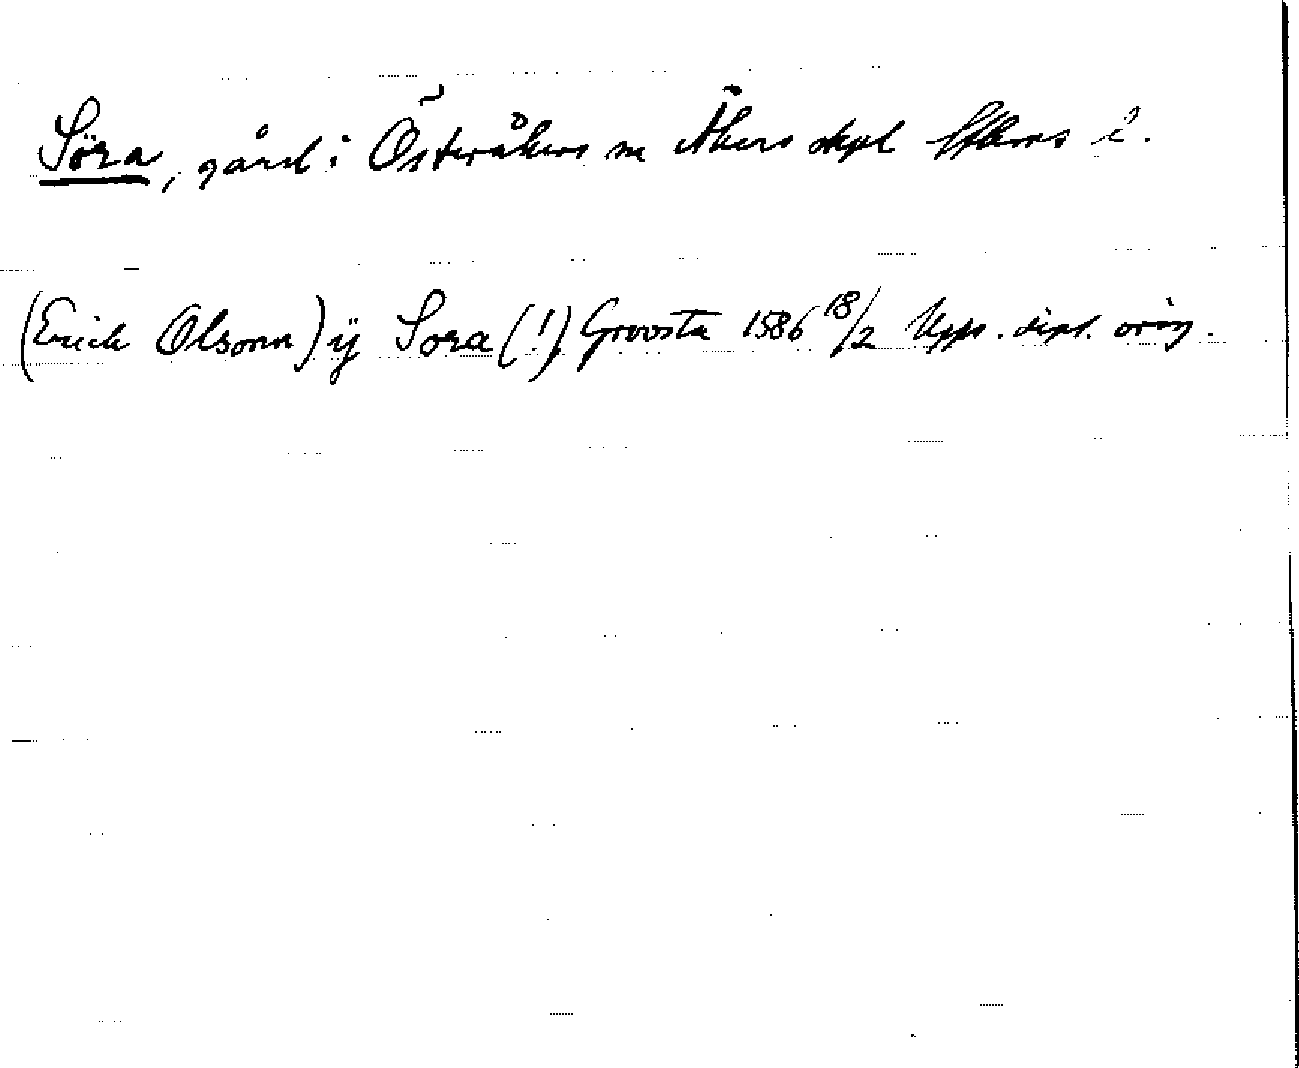 Söra, gård i Österåkers sn Åkers skpl Sthlms l.
(Erick Olsonn) ij Sora (!) Groosta 1586 18/2 Upps. dipl. orig.